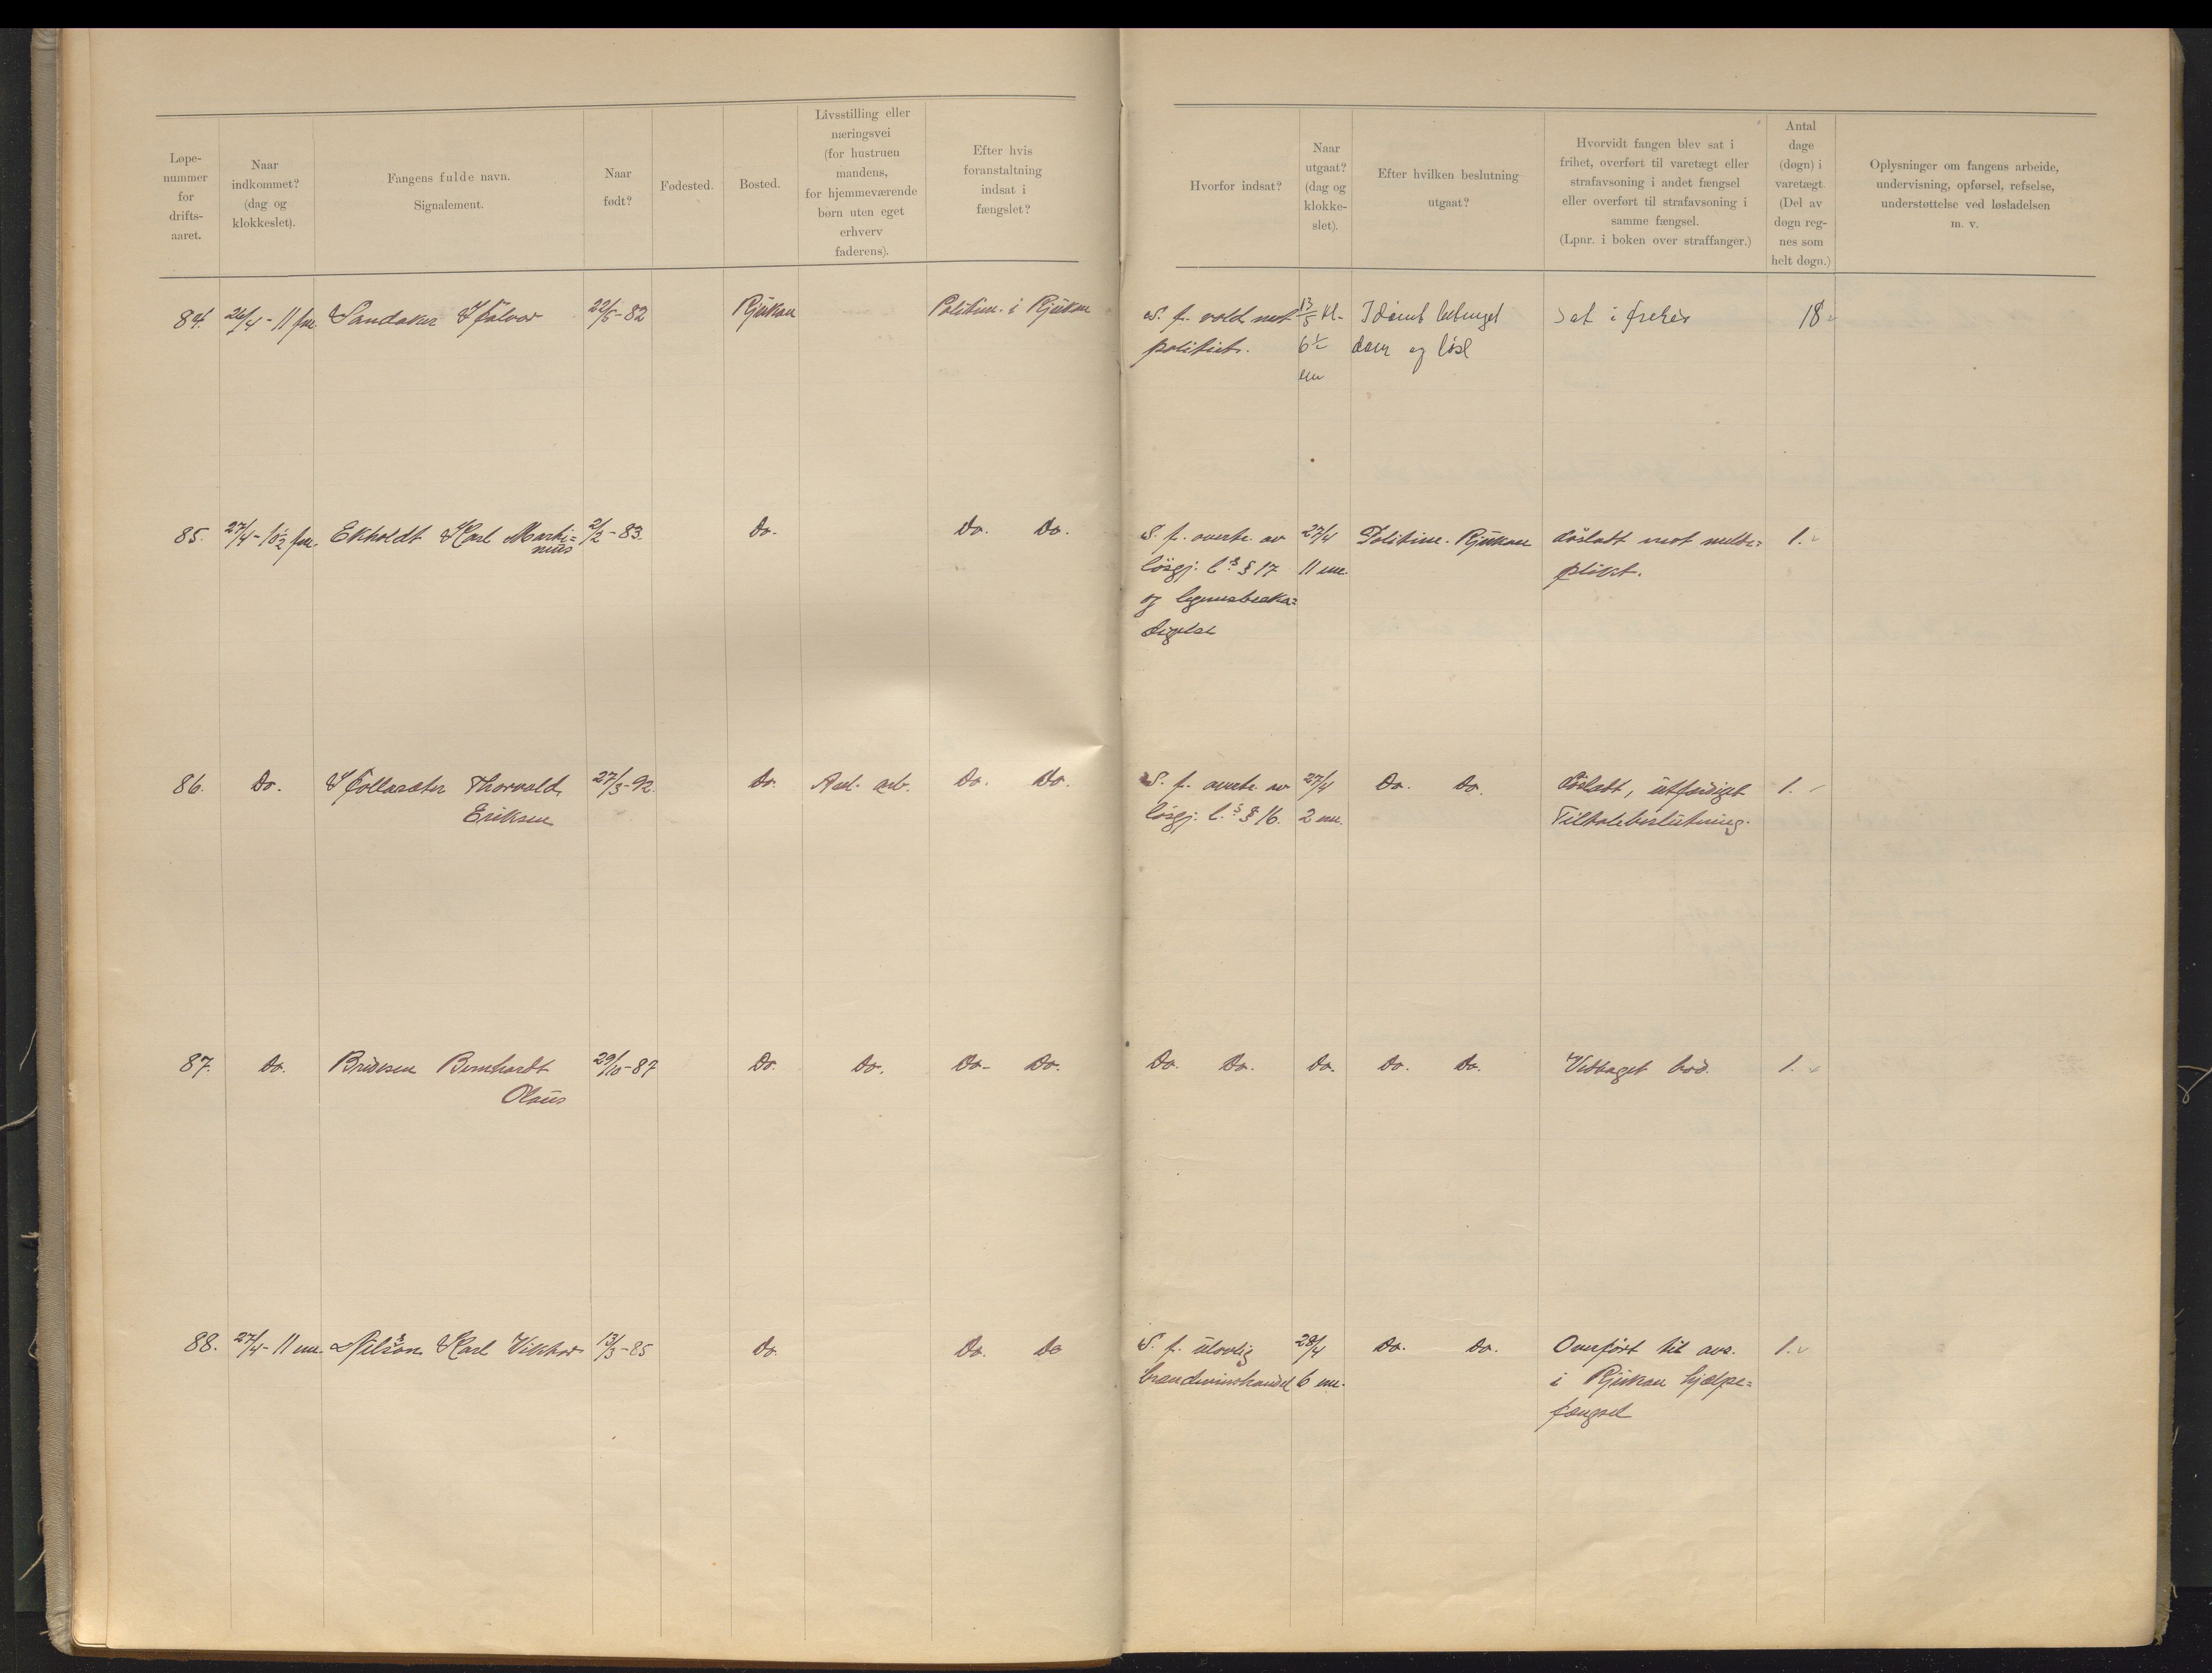 Løpe-
nummer
for
drifts-
aaret.
Naar
indkommet?
(dag og
klokkeslet).
Fangens fulde navn.
Signalement.
Naar
født?
Fødested.
Bosted.
Livsstilling eller
næringsvei
(for hustruen
mandens,
for hjemmeværende
børn uten eget
erhverv
faderens).
Efter hvis
foranstaltning
indsat i
fængslet?
Hvorfor indsat?
Naar
utgaat?
(dag og
klokke-
slet).
Efter hvilken beslutning
utgaat?
Hvorvidt fangen blev sat i
frihet, overført til varetægt eller
strafavsoning i andet fængsel
eller overført til strafavsoning i
samme fængsel.
(Lpnr. i boken over straffanger.)
Antal
dage
(døgn) i
varetægt.
(Del av
døgn reg-
nes som
helt døgn.)
Oplysninger om fangens arbeide,
undervisning, opførsel, refselse,
understøttelse ved løsladelsen
m. v.
84. 26/4 - 11 fm. Sandaker Halvor 22/5-82 Rjukan Politim. i Rjukan S. f. vold mot 13/5 kl- Idømt betinget sat i frihet 18
politiet. 6½ dom og løsl
em
85. 27/4-10½ fm. Ekholdt Karl Marti= 2/2-83. Do. Do. Do. S. f. overtr. av 27/4 Politim. Rjukan Løslatt mot melde= 1.
nius
løsgj. l.s § 17 11 em. plikt.
og legemsbeska=
digelse
86. Do. Hollasæter Thorvald 27/3-92. Do. Anl. arb. Do. Do. S. f. overtr. av 27/4 Do. Do. Løslatt, utfærdiget 1.
Eriksen løsgj. l.s § 16. 2 em. Tiltalebeslutning.
87. Do. Bredesen Bernhardt 29/10-87 Do. Do. Do- Do. Do. Do. Do. Do. Do. Vedtaget bod. 1.
Olaus
88. 27/4-11 em. Nilsson Karl Viktor 13/3-85 Do. Do. Do S. f. ulovlig 28/4 Do. Do. Overført til avs. 1.
brændevinshandel 6 em. i Rjukan hjælpe=
fængsel